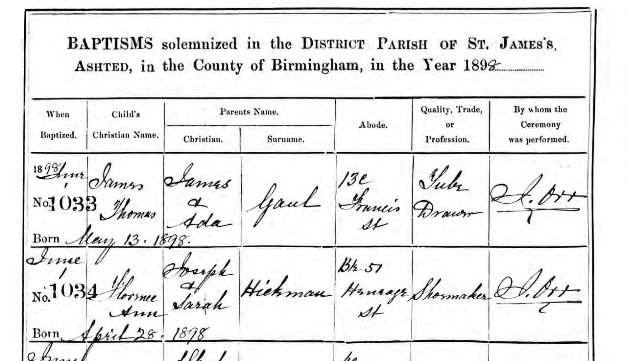 BAPTISMS solemnized in the DISTRICT PARISH OF ST. JAMES'S,
ASHTED, in the County of Birmingham, in the Year 1898
When Baptized.
Child's Christian Name.
Parents Name.
Christian.
Surname.
Abode.
Quality, Trade, or Profession.
By whom the Ceremony was performed.
1898 June 1
No. 1033
James Thomas
James & Ada
Gaul
13c Francis St
Tube Drawer
J. Orr
Born May 13. 1898.
June 1
No. 1034
Florence Ann
Joseph & Sarah
Hickman
Bk 51 Heneage St
Shoemaker
J. Orr
Born April 28. 1898
June